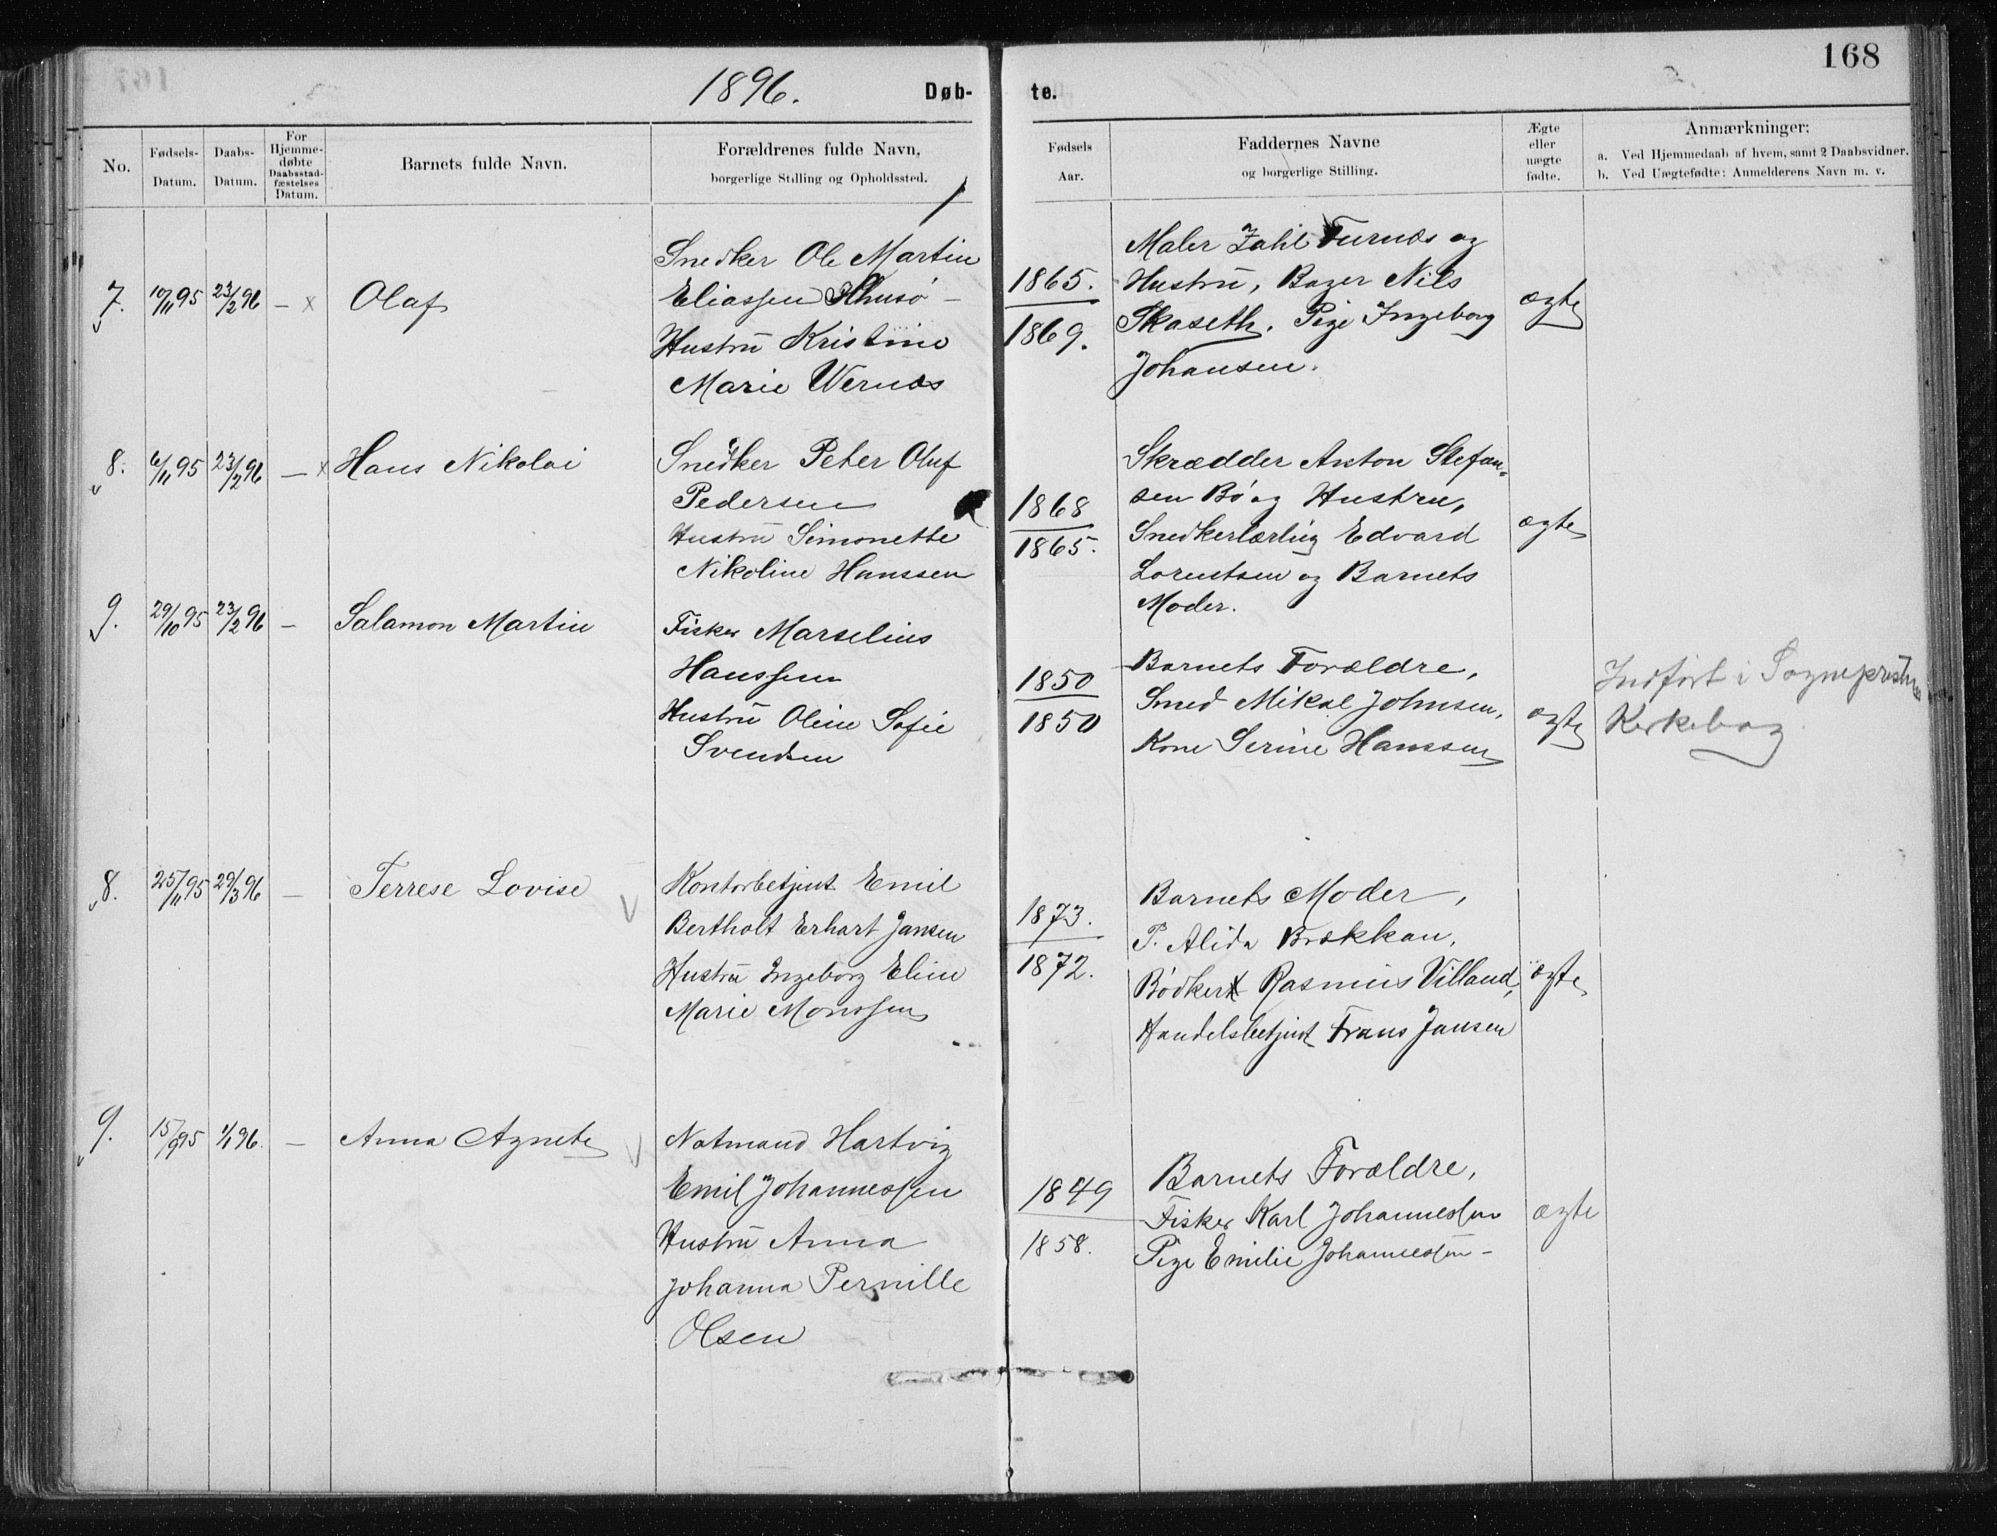 168
1896. Døb- te.
No.
Fødsels- Datum.
Daabs- Datum.
For Hjemme- døbte Daabsstad- fæstelses Datum.
Barnets fulde Navn.
Forældrenes fulde Navn, borgerlige Stilling og Opholdssted.
Fødsels Aar.
Faddernes Navne og borgerlige Stilling.
Ægte eller uægte fødte.
Anmærkninger:
a. Ved Hjemmedaab af hvem, samt 2 Daabsvidner.
b. Ved Uægtefødte: Anmelderens Navn m. v.
7. 10/11 95 23/2 96 — x Olaf
Snedker Ole Martin
Eliassen
Hustru Kristine
Marie Wernes
1865.
1869.
Maler Zahl Furnes og
Hustru, Bager Nils
Skaseth. Pige Ingeborg
Johansen.
ægte
8. 6/11 95 23/2 96 — x Hans Nikolai
Snedker Peter Oluf
Pedersen
Hustru Simonette
Nikoline Hanssen
1868
1865.
Skrædder Anton Stefan-
sen Bø og Hustru,
Snedkerlærling Edvard
Lorentsen og Barnets
Moder.
ægte
9. 29/10 95 23/2 96 — Salamon Martin
Fisker Marselius
Hanssen
Hustru Oline Sofie
Svendsen
1850
1850
Barnets Forældre,
Smed Mikal Johnsen,
Kone Serine Hanssen
ægte
Indført i Sogneprestens
Kirkebog
8. 25/11 95 29/3 96 — Terrese Lovise
Kontorbetjent Emil
Bertholt Erhart Jansen
Hustru Ingeborg Eline
Marie Monssen
1873.
1872.
Barnets Moder,
P. Alida Brækkan,
Bødker Rasmus Villand,
Handelsbetjent Frans Jansen
ægte
9. 15/9 95 1/1 96. — Anna Agnete
Notmand Hartvig
Emil Johannessen
Hustru Anna
Johanna Pernille
Olsen
1849
1858.
Barnets Forældre,
Fisker Karl Johannessen
Pige Emilie Johannessen —
ægte